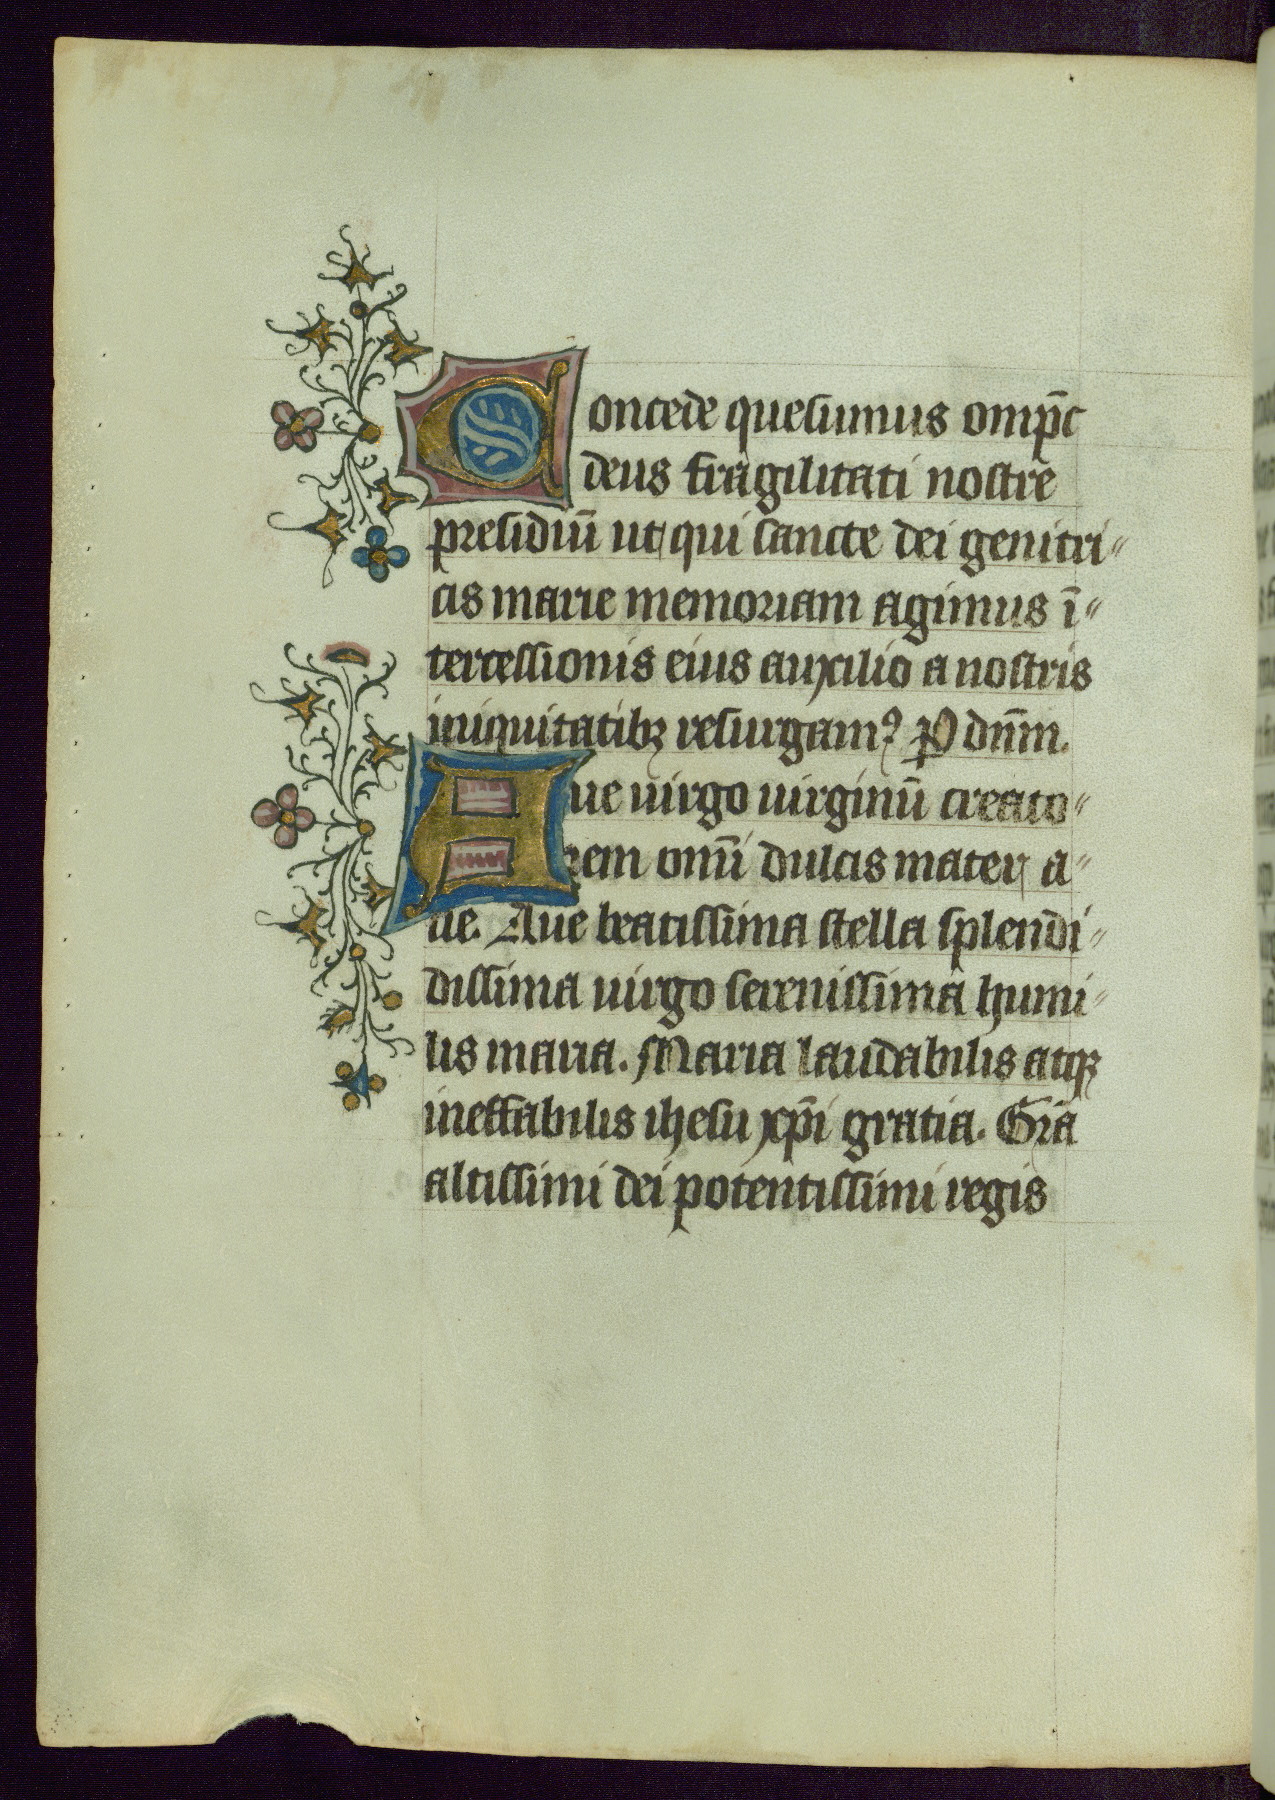 Concede quesumus omp̄c
deus fragilitati nostre
presidiū ut qui sancte dei genitri〃
cis marie memoriam agimus ī〃
tercessionis eius auxilio a nostris
iniquitatibꝫ resurgamꝰ P dn̄m.
Aue uirgo uirginū creato〃
rem omī dulcis mater a〃
ue. Aue beatissima stella splendi〃
dissima uirgo serenissima humi〃
lis maria. Maria laudabilis atqꝫ
ineffabilis ihesu xp̄i gratia. Grā
altissimi dei potentissimi regis